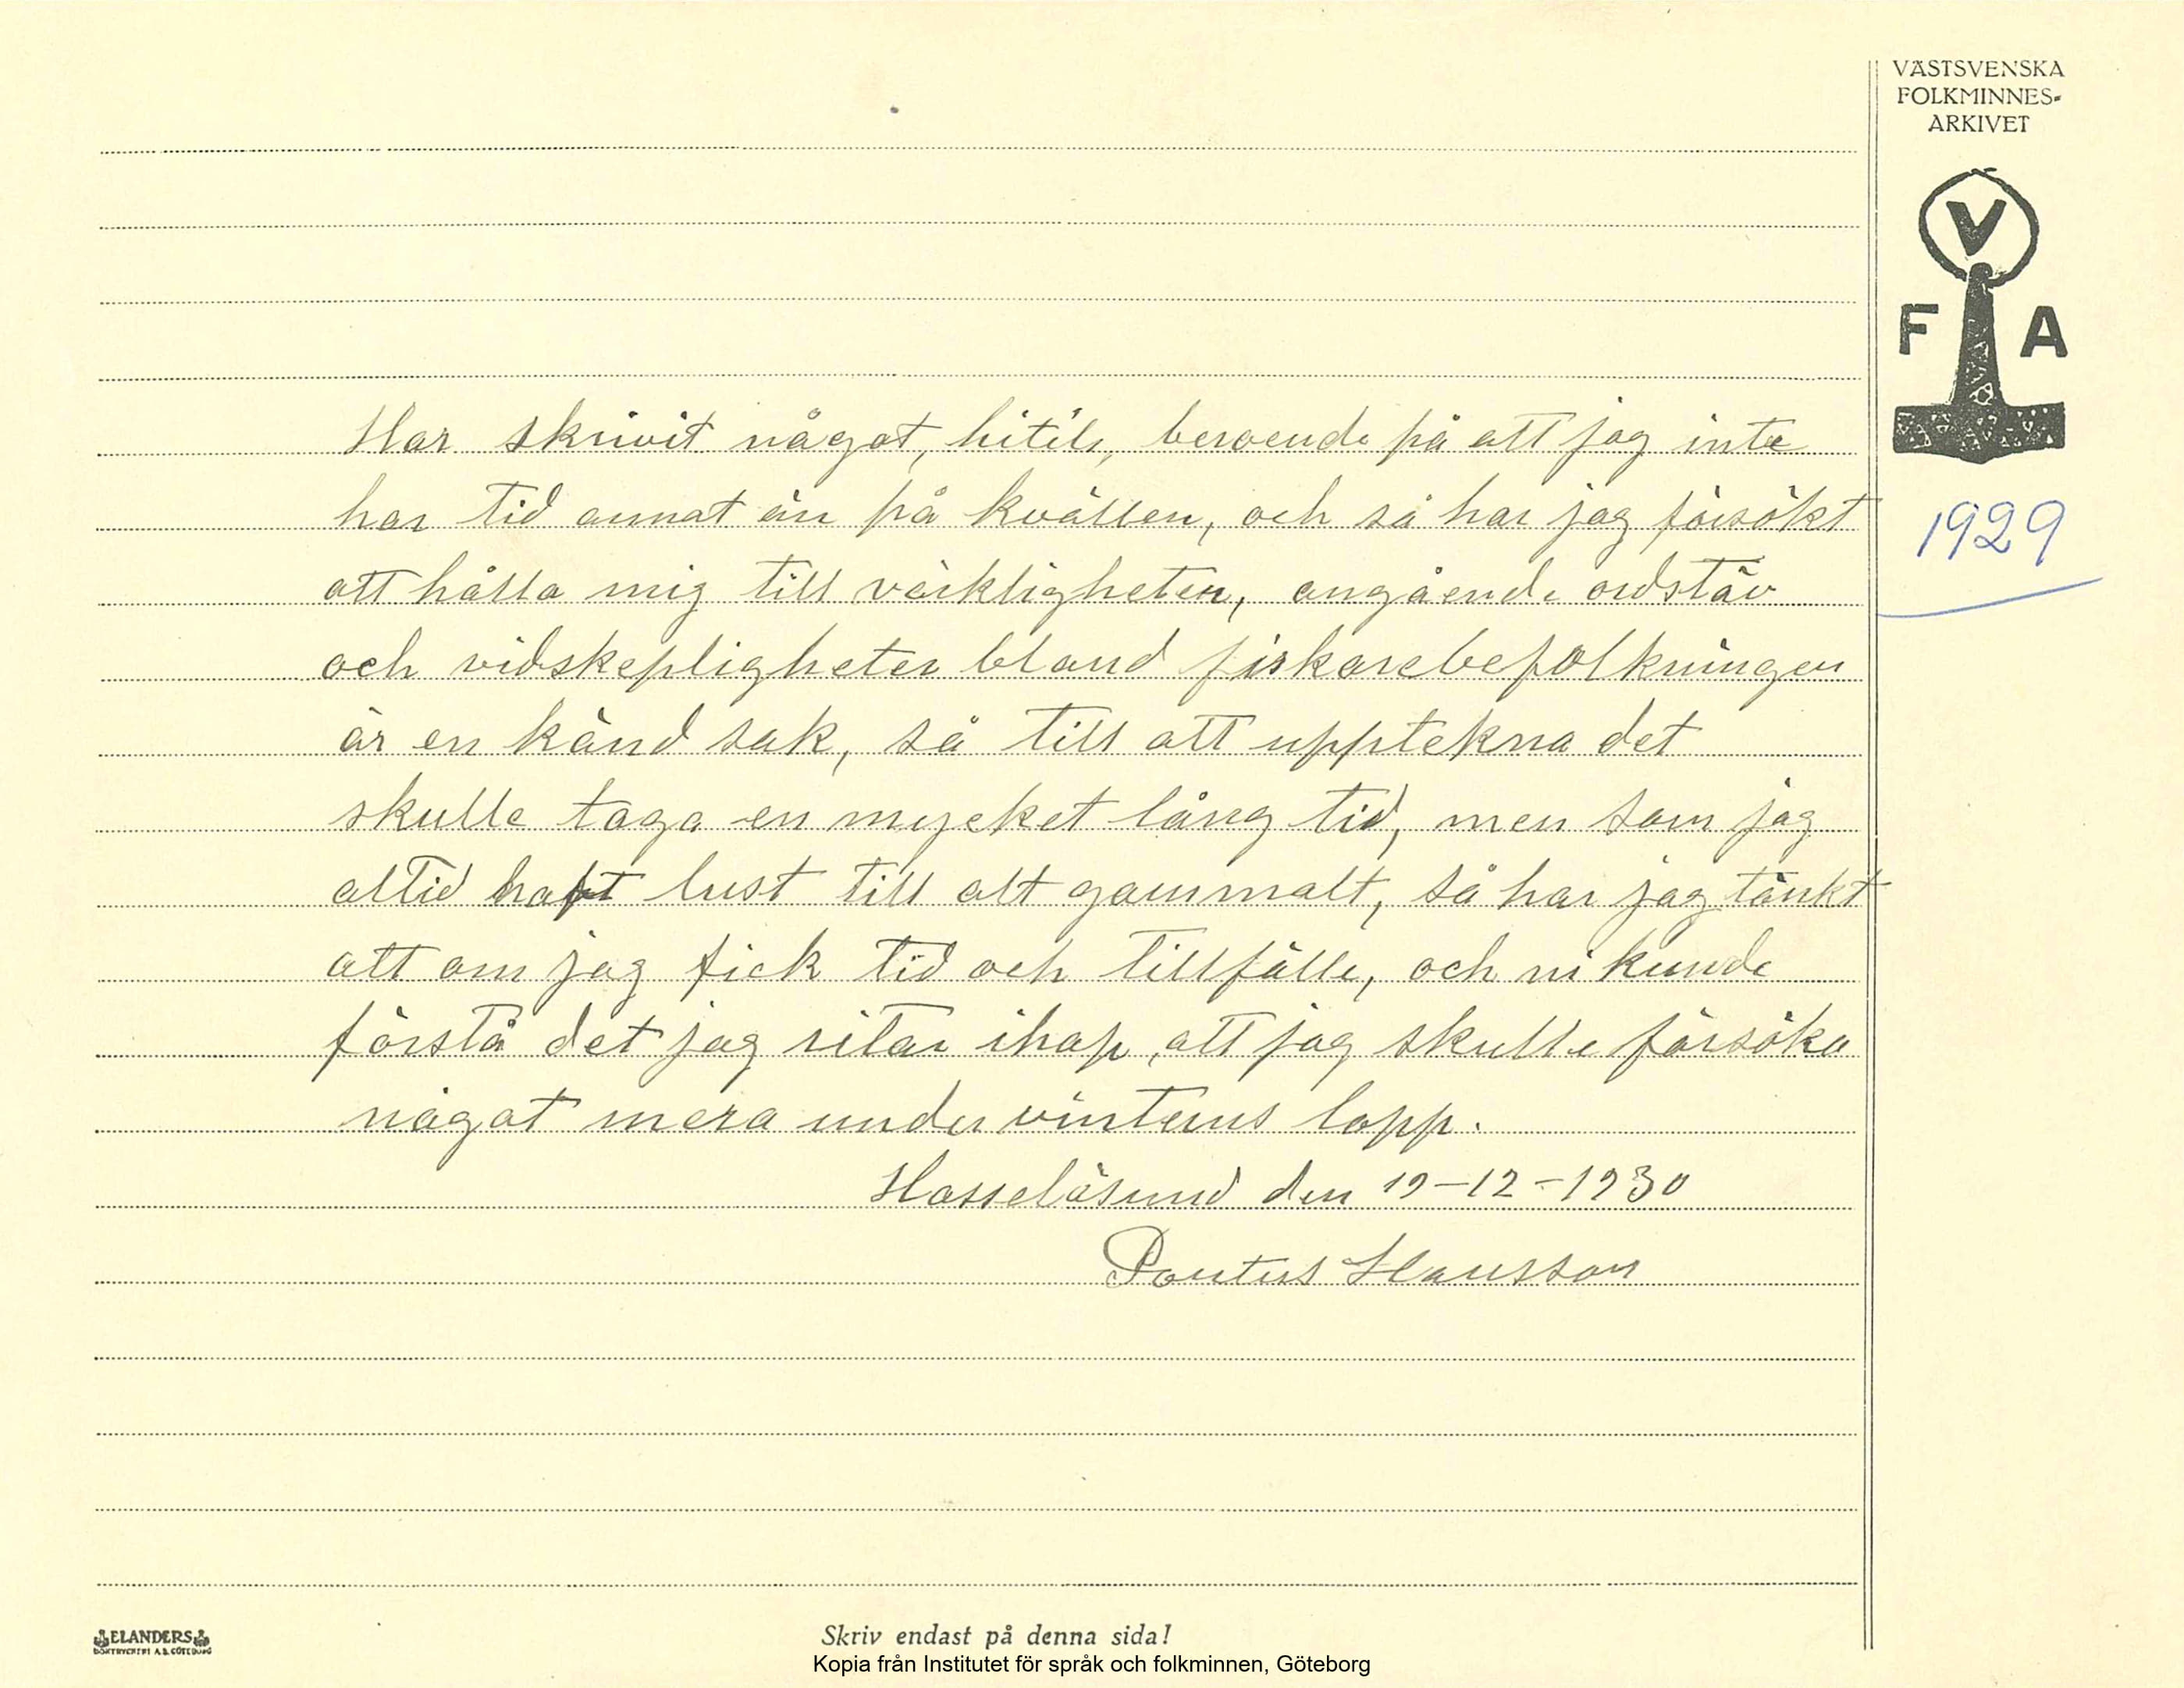 VÄSTSVENSKA
FOLKMINNES-
ARKIVET
V
F A
1929
Har skrivit något, hitils, beroende på att jag inte
har tid annat än på kvällen, och så har jag försökt
att hålla mig till värkligheten, angående ordstäv
och vidskepligheter bland fiskarebefolkningen
är en känd sak, så till att upptekna det
skulle taga en mycket lång tid, men som jag
altid haft lust till alt gammalt, så har jag tänkt
att om jag fick tid och tillfälle, och ni kunde
förstå det jag ritar ihop, att jag skulle försöka
något mera under vinterns lopp.
Hasselösund den 19-12-1930
Pontus Hansson
ELANDERS
BOKTRYCKERI A.B. GÖTEBORG
Skriv endast på denna sida!
Kopia från Institutet för språk och folkminnen, Göteborg